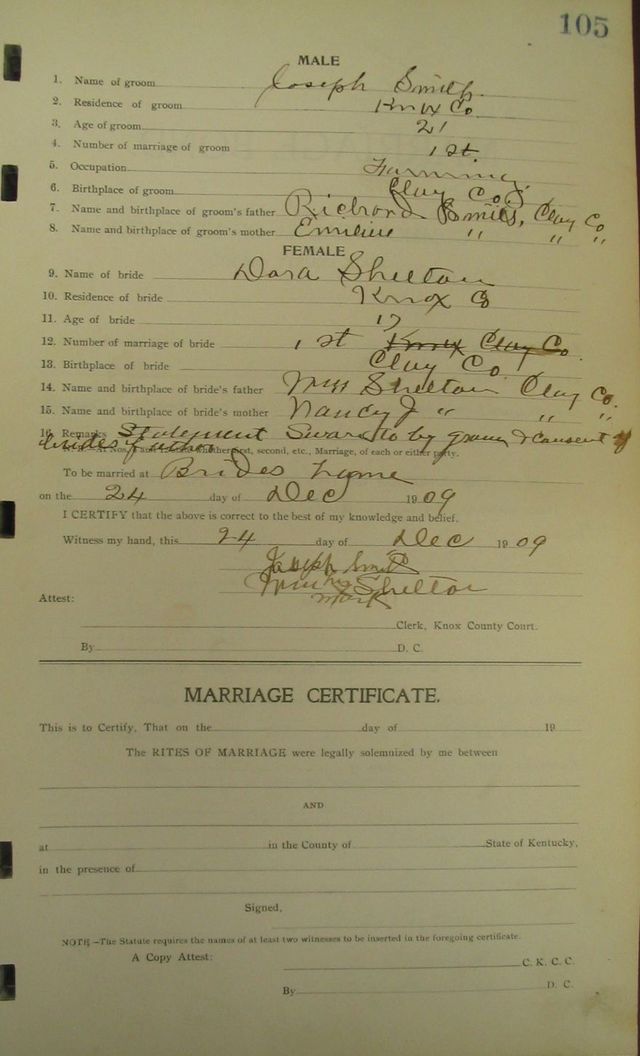 105
MALE
1. Name of groom Joseph Smith
2. Residence of groom Knox Co
3. Age of groom 21
4. Number of marriage of groom 1st
5. Occupation Farming
6. Birthplace of groom Clay Co
7. Name and birthplace of groom's father Richard Smith, Clay Co
8. Name and birthplace of groom's mother " " "
FEMALE
9. Name of bride Dora Shelton
10. Residence of bride Knox Co
11. Age of bride 17
12. Number of marriage of bride 1 st Knox Clay Co
13. Birthplace of bride Clay Co
14. Name and birthplace of bride's father Wm Shelton Clay Co.
15. Name and birthplace of bride's mother Nancy J " " "
16. Remarks Statement Sware to by groom & consent of
brides father
whether first, second, etc., Marriage, of each or either party.
To be married at Brides home
on the 24 day of Dec 1909
I CERTIFY that the above is correct to the best of my knowledge and belief.
Witness my hand, this 24 day of Dec 1909
Joseph Smith
Wm his Shelton
mark
Attest:
Clerk, Knox County Court.
By D. C.
MARRIAGE CERTIFICATE.
This is to Certify, That on the day of 19
The RITES OF MARRIAGE were legally solemnized by me between
AND
at in the County of State of Kentucky,
in the presence of
Signed,
NOTE—The Statute requires the names of at least two witnesses to be inserted in the foregoing certificate.
A Copy Attest: C. K. C. C.
By D. C.